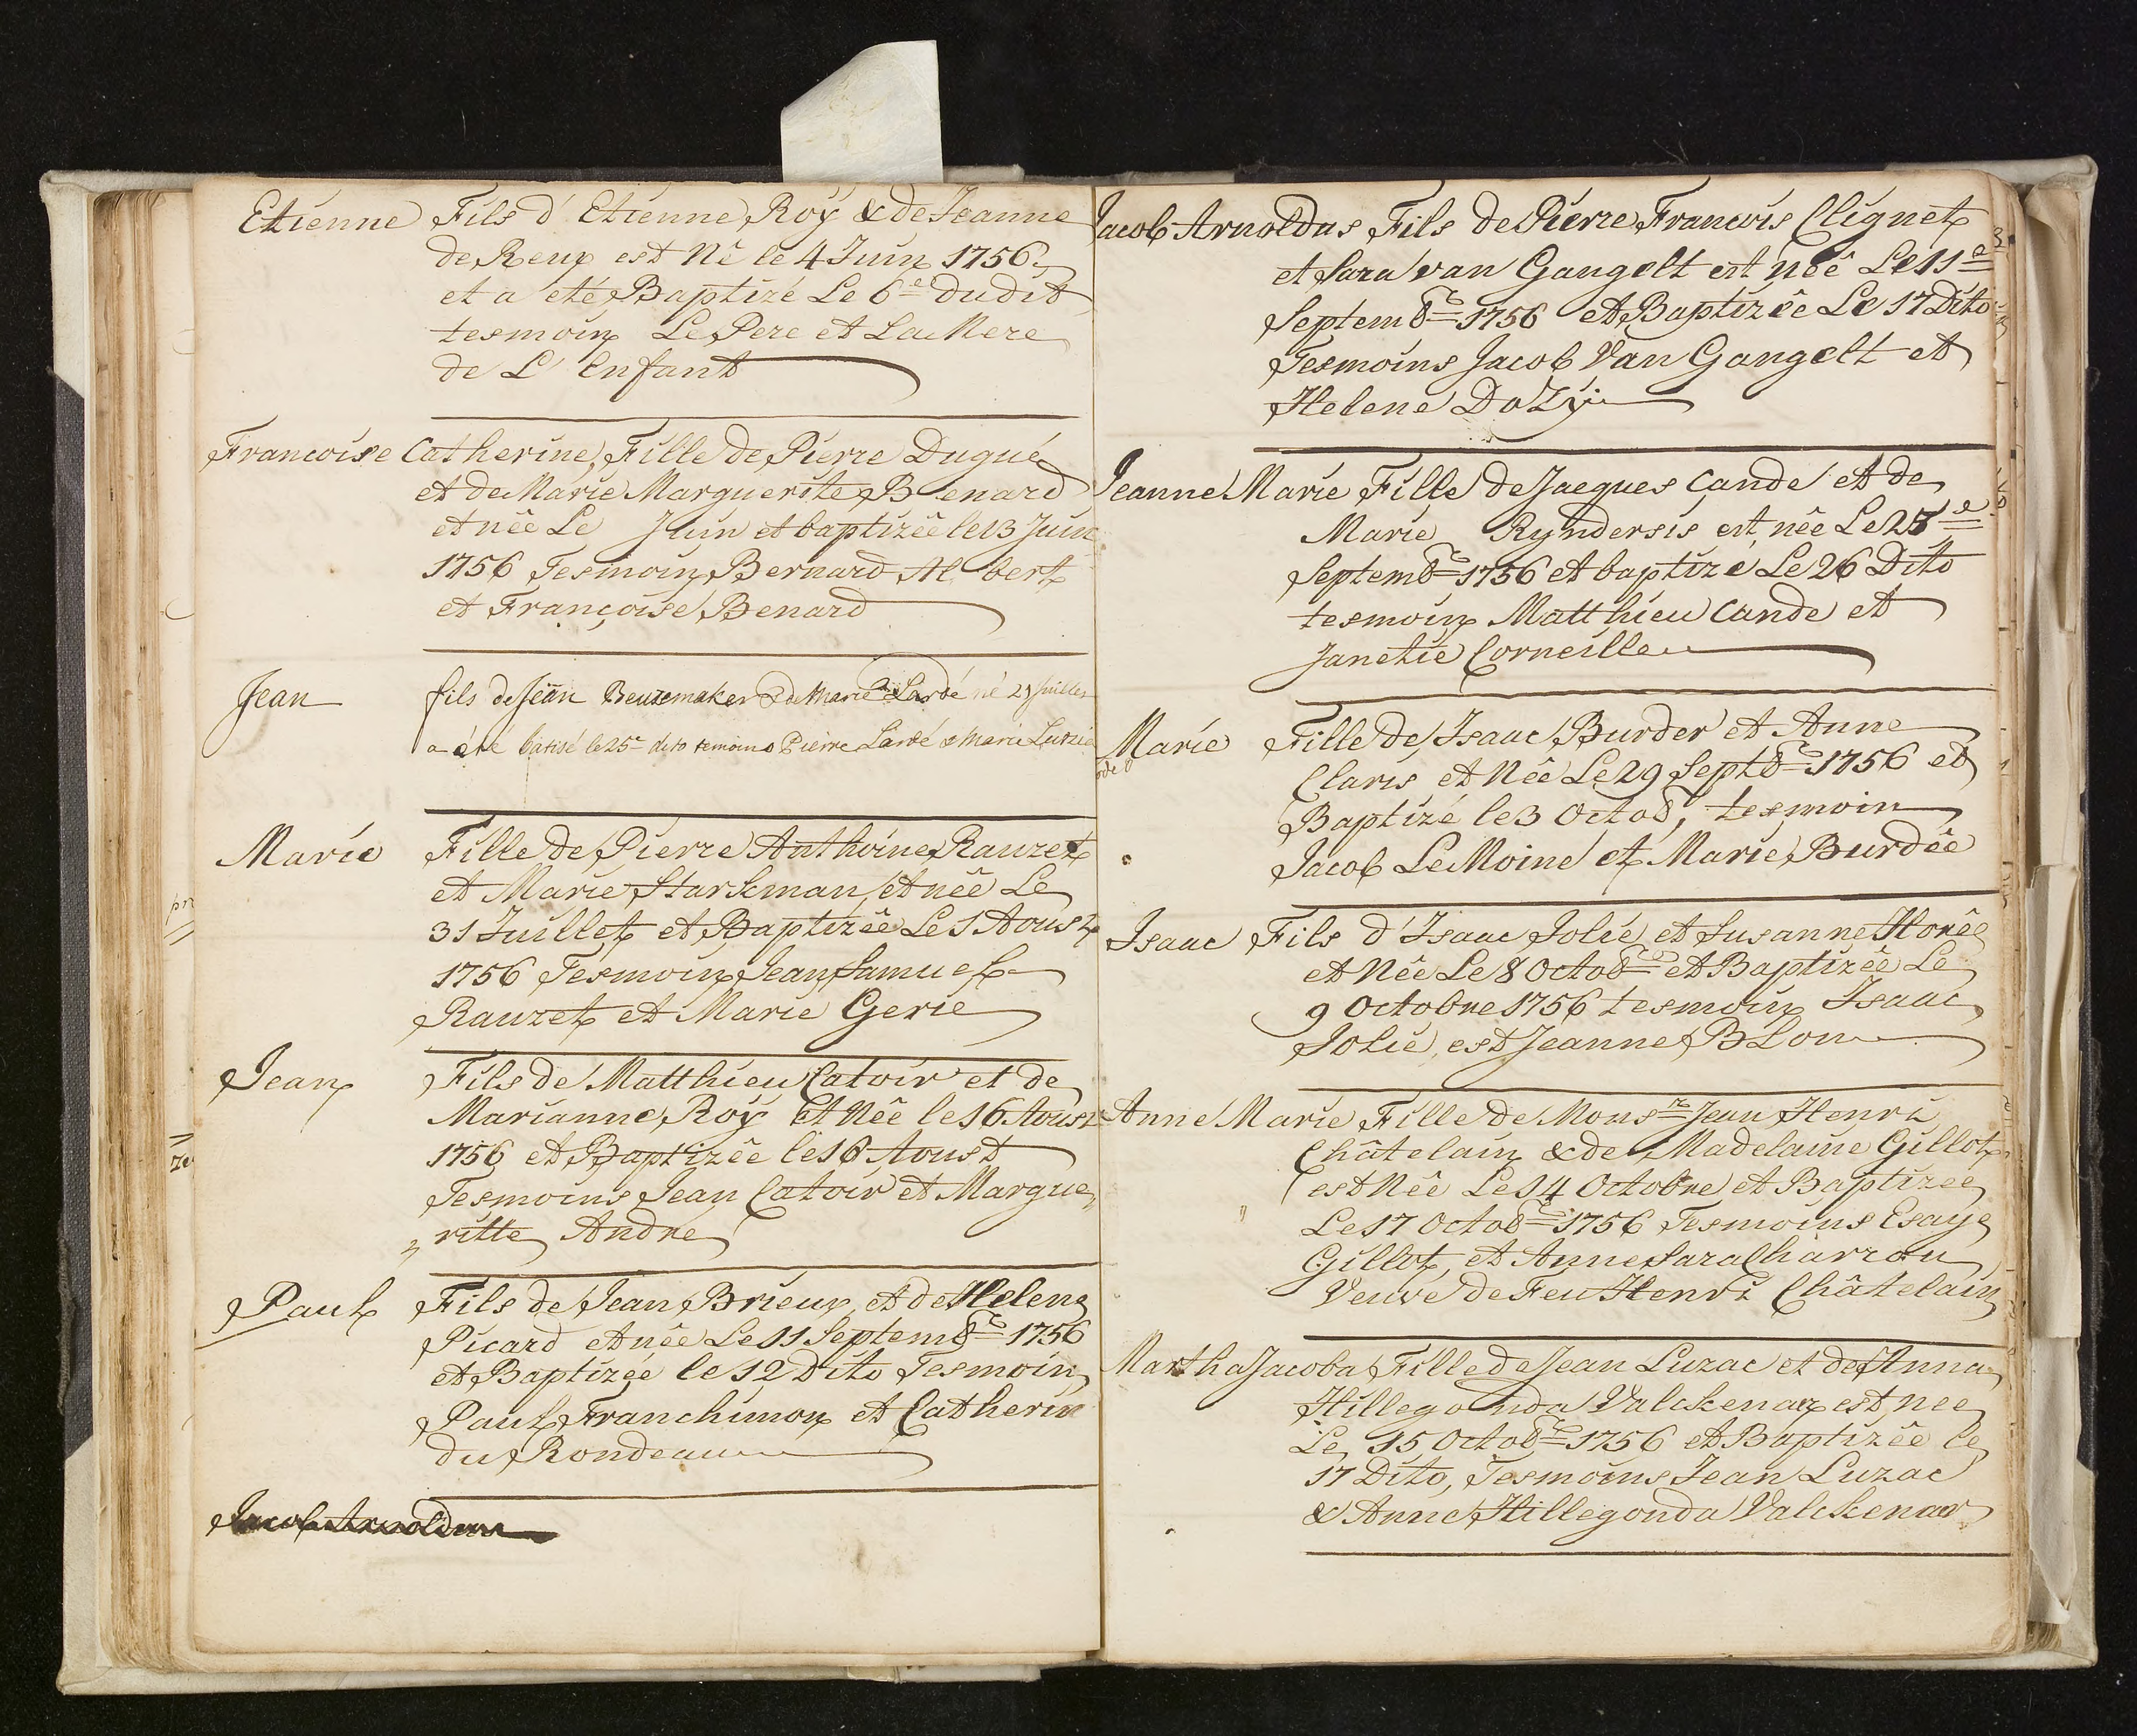 Etienne Fils d'Etienne Roÿ & de Jeanne
de Reux est Né le 4 Juin 1756
et a eté Baptizé Le 6e dudit
tesmoin Le Pere et La Mere
de L'Enfant
Francoise Catherine, Fille de Pierre Dugué
et de Marie Marguerite Benard
et née Le Juin et baptizêe le 13 Juin
1756 Tesmoin Bernard Albert
et Françoise Benard
Jean fils de Jean Beuzemaker & de Marie Lardé né 21 Juillet
a été batisé le 25e dito temoins Pierre Lardé & Marie
Marie Fille de Pierre Anthoine Rauzet
et Marie Starkman, et née Le
31 Juillet et Baptizée Le 1 Aoust
1756 Tesmoin Jean Samuel
Rauzet et Marie Gerie
Jean Fils de Matthieu Catoir et de
Marianne Roÿ et Nêe le 16 Aoust
1756 et Baptizêe le 16 Aoust
Tesmoins Jean Catoir et Margue
ritte Andre
Paul Fils de Jean Brieux, et de Helene
Picard et née Le 11 Septembr 1756
et Baptizée le 12 Dito Tesmoin
Paul Franchimon et Catherine
du Rondeau
Jacob Arnoldus
Jacob Arnoldus Fils de Piérre Francois Clignet
et Sara van Gangelt est née Le 11e
Septembr 1756 et Baptizêe Le 17 Dito
Tesmoins Jacob Van Gangelt et
Helene Dozÿ
Jeanne Marie Fille de Jacques Cande et de
Marie Ryndersis est née Le 25e
Septembr 1756 et baptizé Le 26 Dito
tesmoin Matthieu Cande et
Janetie Corneille
Marie Fille de Isaac Burder et Anne
Claris et Née Le 29 Septbr 1756 et
Baptizé le 3 Octob, tesmoin
Jacob Le Moine et Marie Burdêe
Isaac Fils d'Isaac Jolié et Susanne Honêe
et Née Le 8 Octobre et Baptizêe Le
9 Octobre 1756 tesmoin Isaac
Jolié, est Jeanne BLon
Anne Marie Fille de Monsr Jean Henri
Châtelain & de Madelaine Gillot
est Née Le 14 Octobre et Baptizee
Le 17 Octobr 1756 Tesmoins Esaye
Gillot, et Anne Sara Charron
Veuve de Feu Henri Châtelain
Martha Jacoba Fille de Jean Luzac et de Anna
Hillegonda Valckenaer est, nee
Le 15 Octobr 1756 et Baptizêe le
17 Dito, Tesmoins Jean Luzac
& Anne Hillegonda Valckenaer